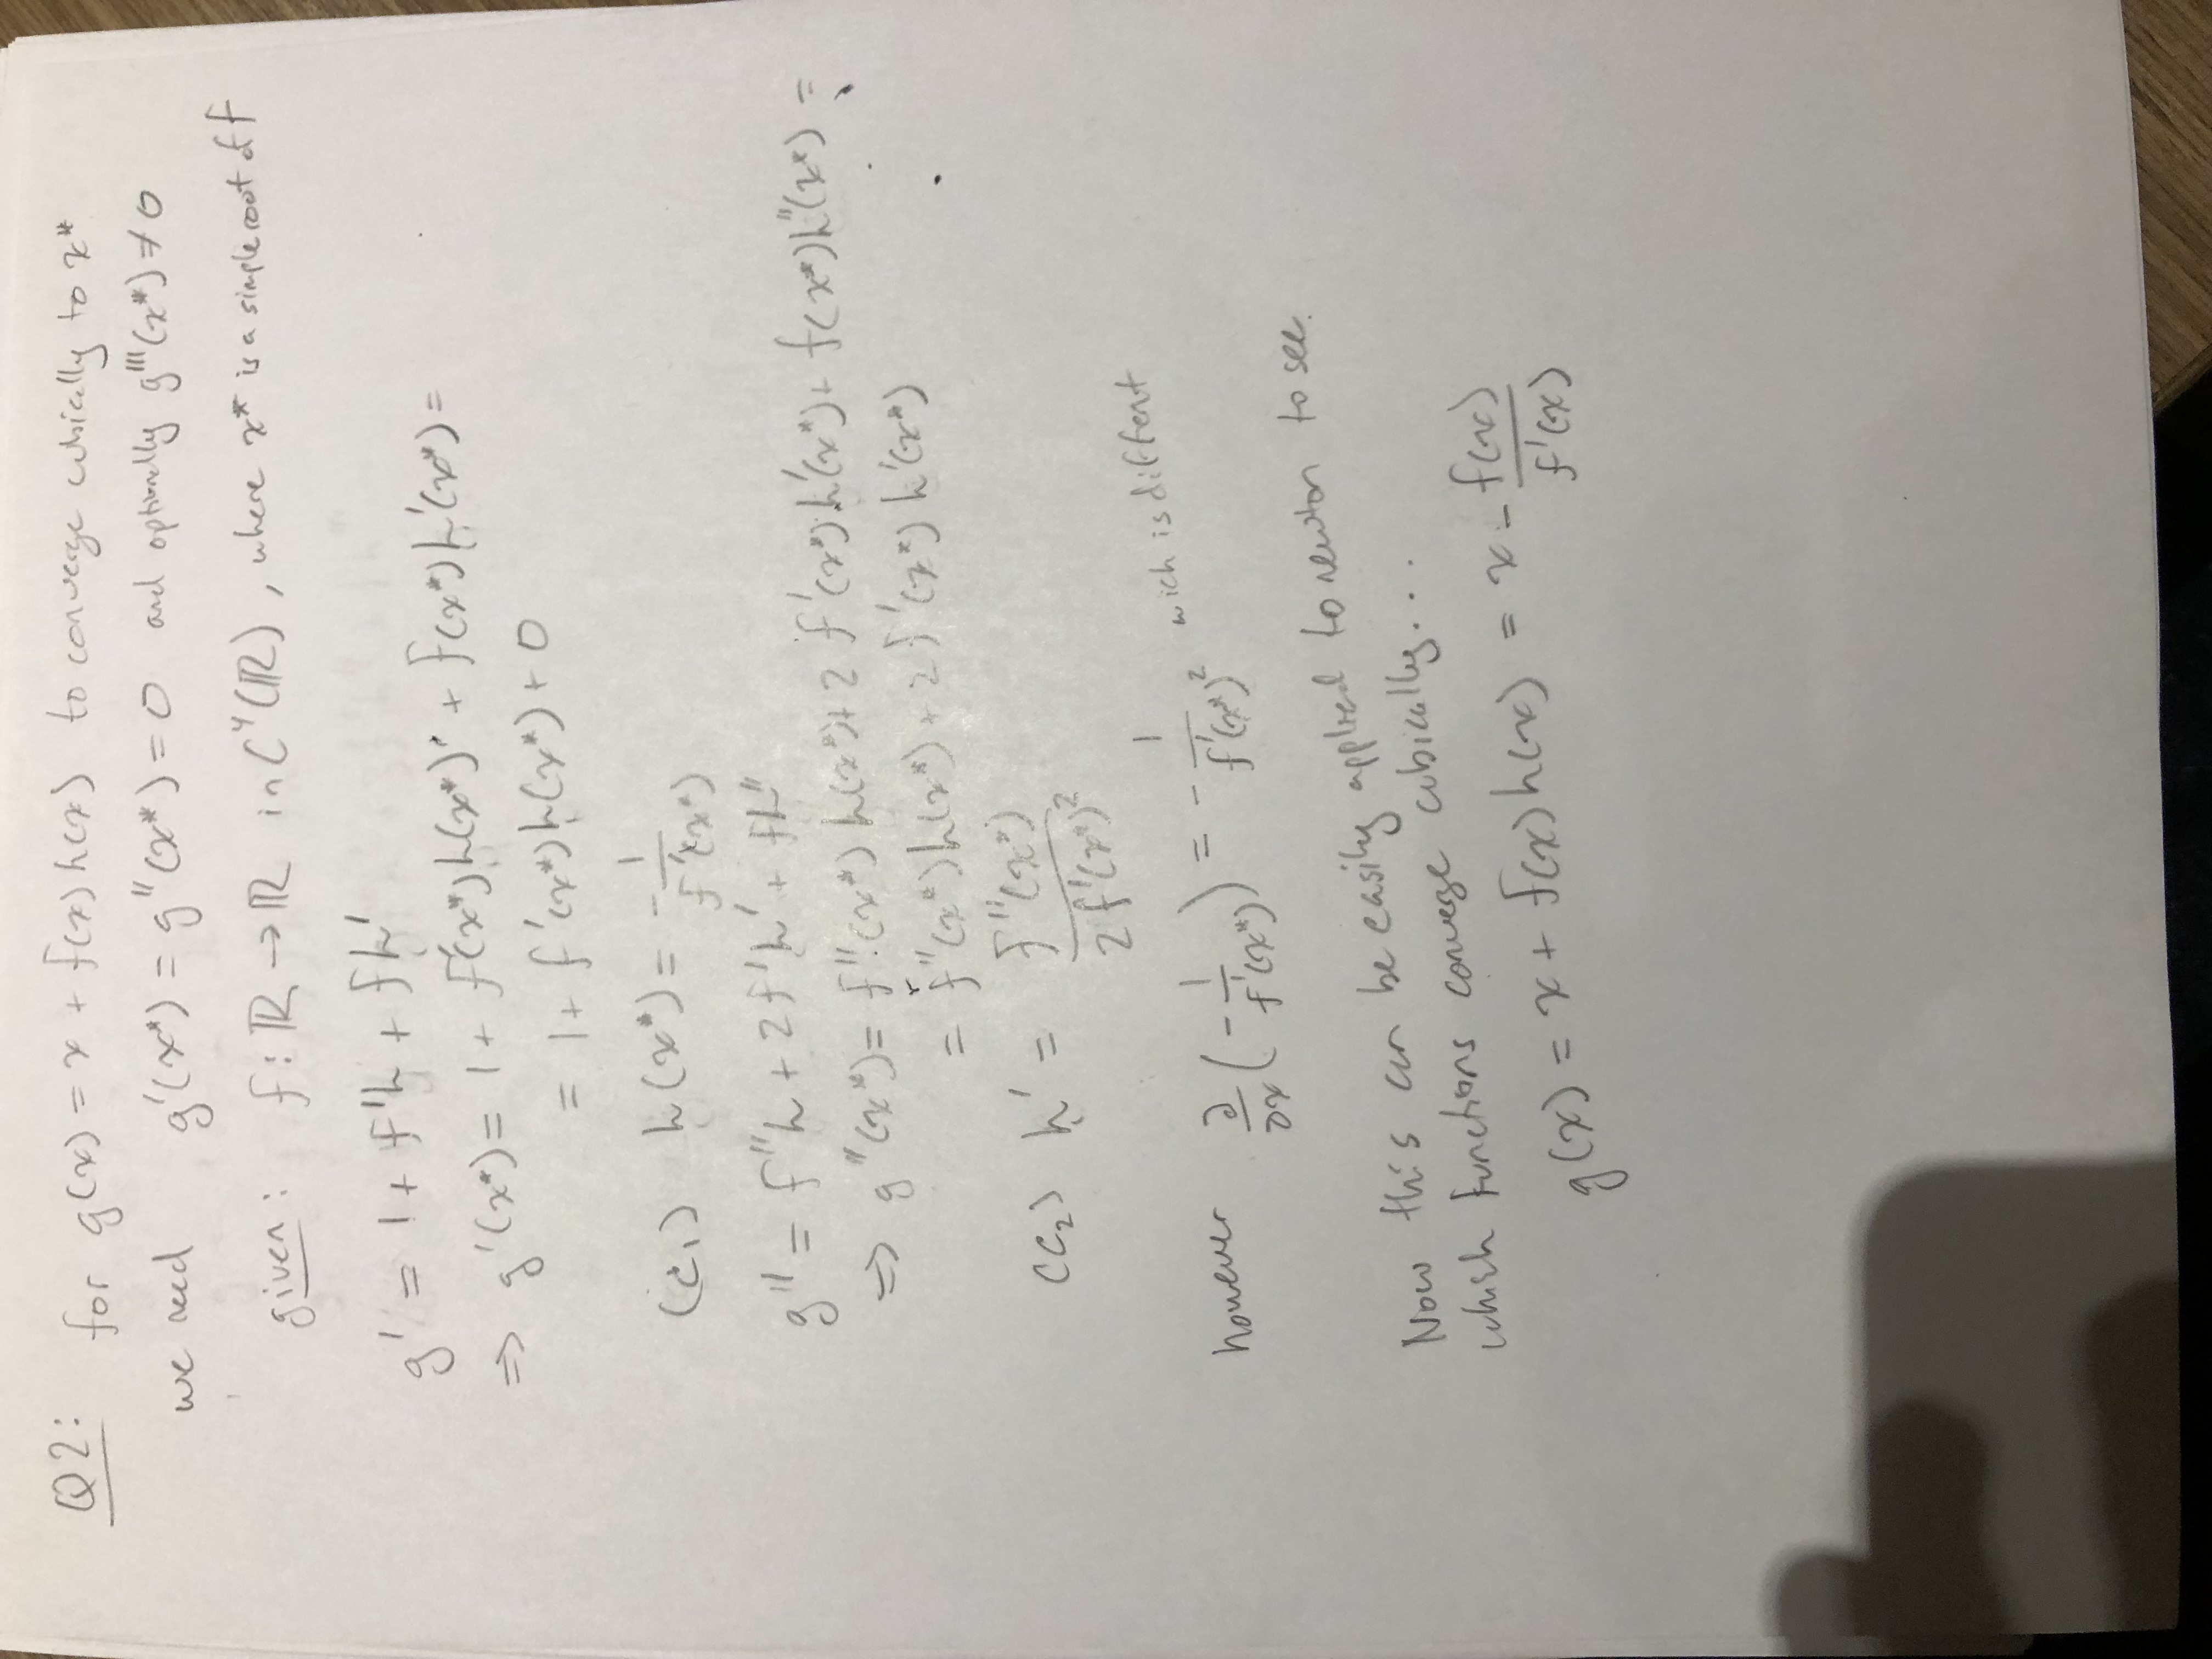 Q2: for g(x) = x + f(x)h(x) to converge cubically to x*
we need g'(x*) = g''(x*) = 0 and optionally g'''(x*) ≠ 0
given: f: ℝ → ℝ in C⁴(ℝ), where x* is a simple root of f
g' = 1 + f'h + fh'
⇒ g'(x*) = 1 + f'(x*)h(x*) + f(x*)h'(x*) =
= 1 + f'(x*)h(x*) + 0
(c₁) h(x*) = -1/f'(x*)
g'' = f''h + 2f'h' + fh''
⇒ g''(x*) = f''(x*)h(x*) + 2f'(x*)h'(x*) + f(x*)h''(x*) =
= f''(x*)h(x*) + 2f'(x*)h'(x*)
(c₂) h' = f''(x*)/2f'(x*)²
however ∂/∂x(-1/f'(x*)) = -1/f'(x*)² wich is diffent
Now this can be easily applied to newton to see
which functions converge cubically...
g(x) = x + f(x)h(x) = x - f(x)/f'(x)